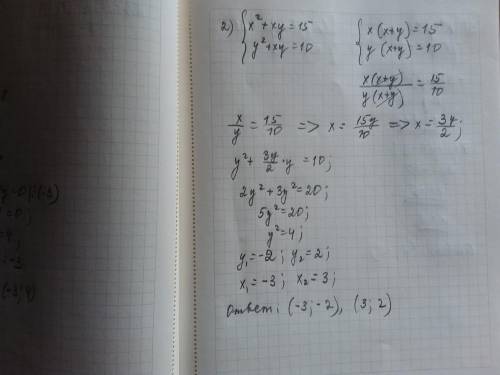 2) { x² + xy = 15    { x(x+y) = 15
{ y² + xy = 10    { y(x+y) = 10
x(x+y)/y(x+y) = 15/10
x/y = 15/10 => x = 15y/10 => x = 3y/2;
y² + 3y/2 · y = 10;
2y² + 3y² = 20;
5y² = 20;
y² = 4;
y₁ = -2; y₂ = 2;
x₁ = -3; x₂ = 3;
Ответ: (-3; -2), (3; 2)